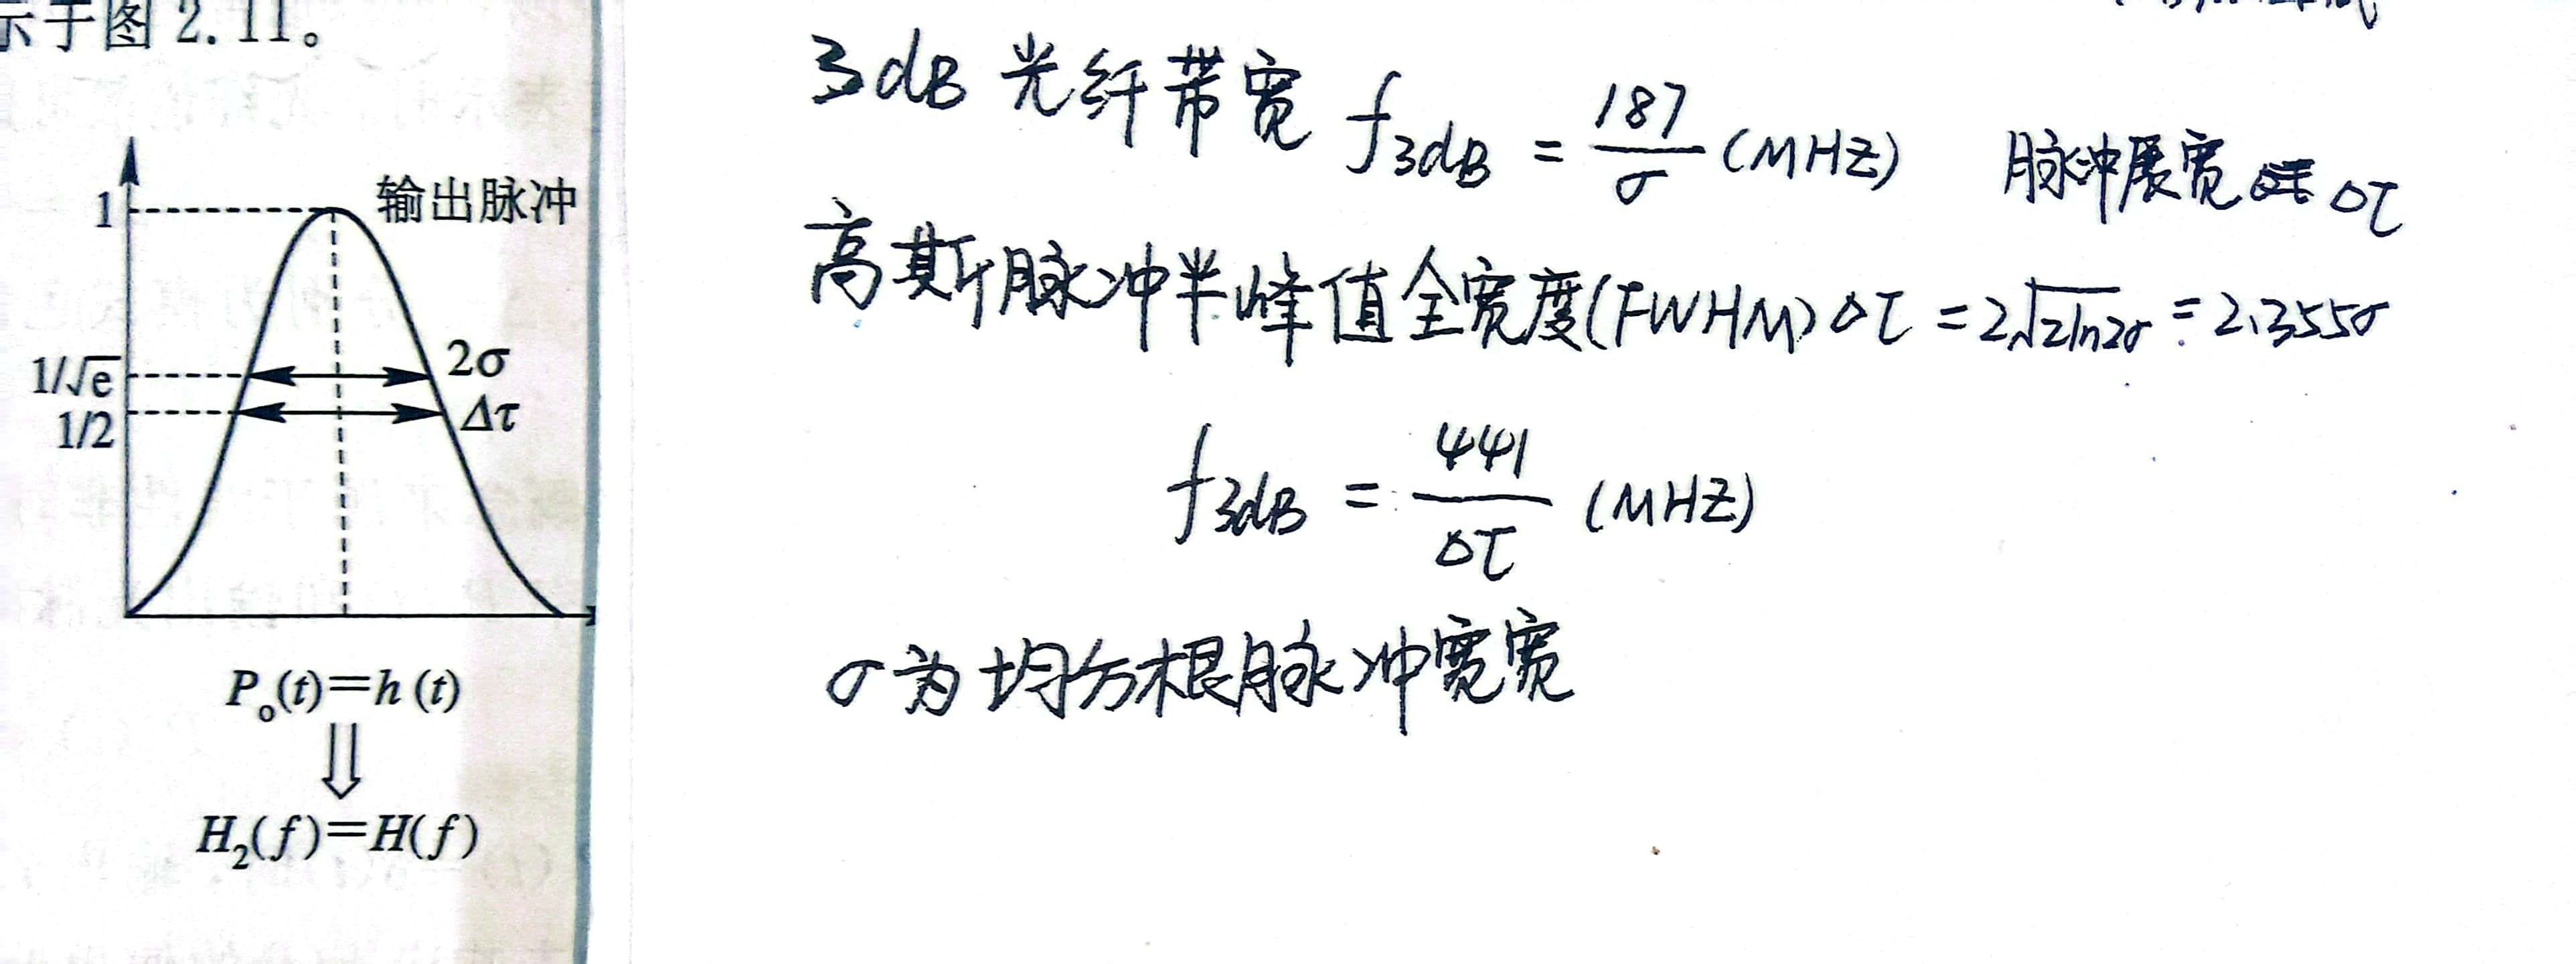 示于图 2.11。
1
输出脉冲
1/√e
2σ
1/2
Δτ
Pₒ(t)=h(t)
⇓
H₂(f)=H(f)
3dB 光纤带宽 f3dB = 187/σ (MHZ) 脉冲展宽 Δτ
高斯脉冲半峰值全宽度(FWHM) Δτ = 2√2ln2σ = 2.355σ
f3dB = 441/Δτ (MHZ)
σ为均方根脉冲宽宽